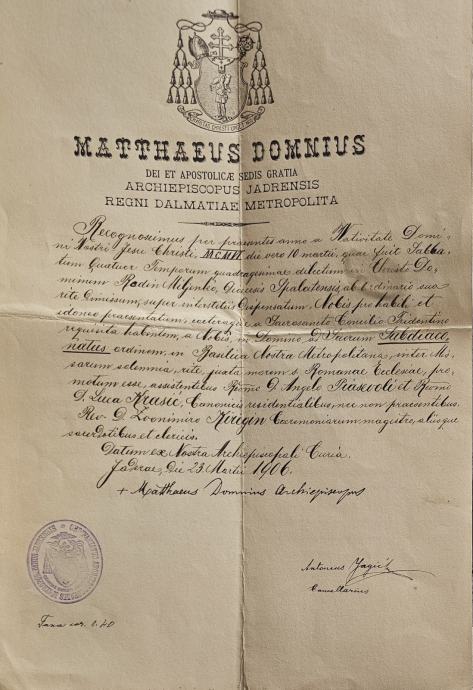 MATTHAEUS DOMNIUS
DEI ET APOSTOLICÆ SEDIS GRATIA
ARCHIEPISCOPUS JADRENSIS
REGNI DALMATIAE METROPOLITA
Recognoscimus per praesentes anno a Nativitate Domi-
ni Nostri Jesu Christi, die vero 10 martii, quae fuit Sabba-
tum Quatuor Temporum quadragesimae dilectum in Christo Do-
minum Radin Dioecesis Spalatensis, ab Ordinario suo
rite dimissum, super interstitiis dispensatum, Nobis probabilit et
idonee praesentatum, ceteraque a Sacrosancto Concilio Tridentino
requisita habentem, a Nobis, in Domino, ad Sacrum Subdiaco-
natus ordinem, in Basilica Nostra Metropolitana, inter Mis-
sarum solemnia, rite, juxta morem s. Romanae Ecclesiae, pro-
motum esse, assistentibus Rmo D. Angelo et Rmo
D. Luca Krussić, Canonicis residentialibus, nec non praesentibus
Rev. D. Zvonimiro Kirigin Caeremoniarum magistro, aliisque
sacerdotibus et clericis.
Datum ex Nostra Archiepiscopali Curia.
Jaderae, Die 23 Martii 1906.
+ Matthaeus Domnius Archiepiscopus
Antonius Jagić
Cancellarius
Taxa cor.